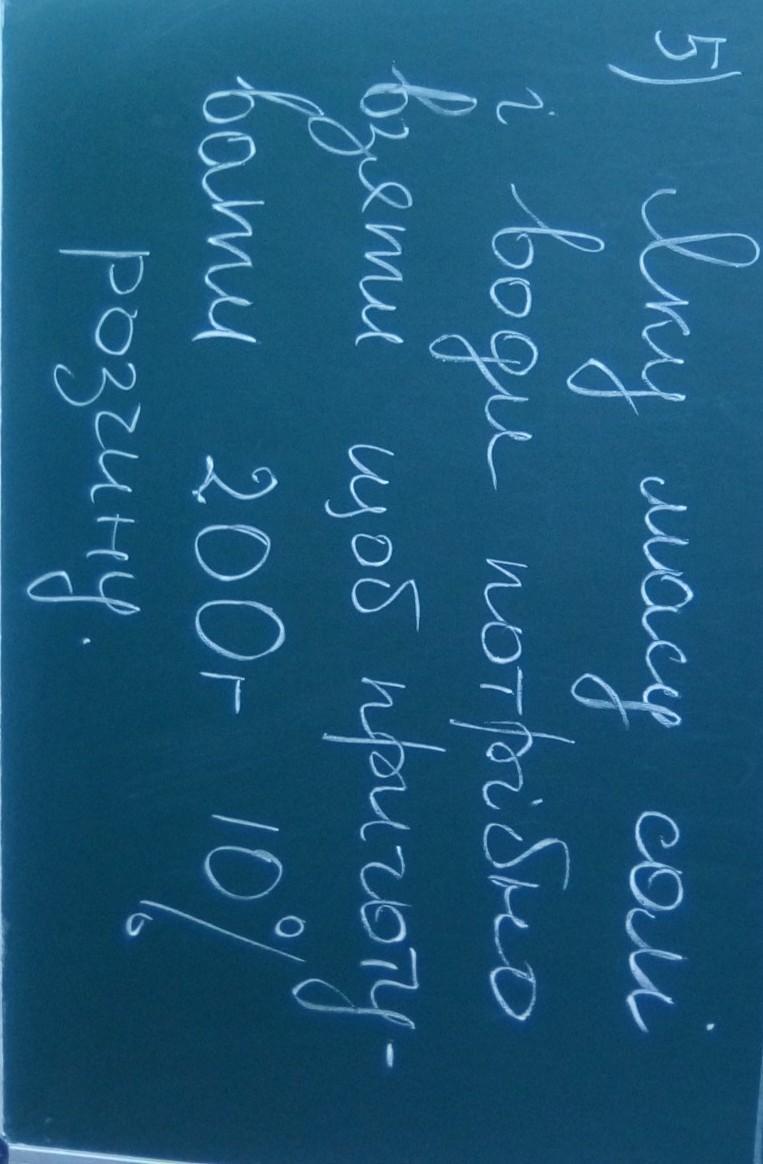 5) Яку масу солі
і води потрібно
взяти щоб приготу-
вати 200г 10%
розчину.